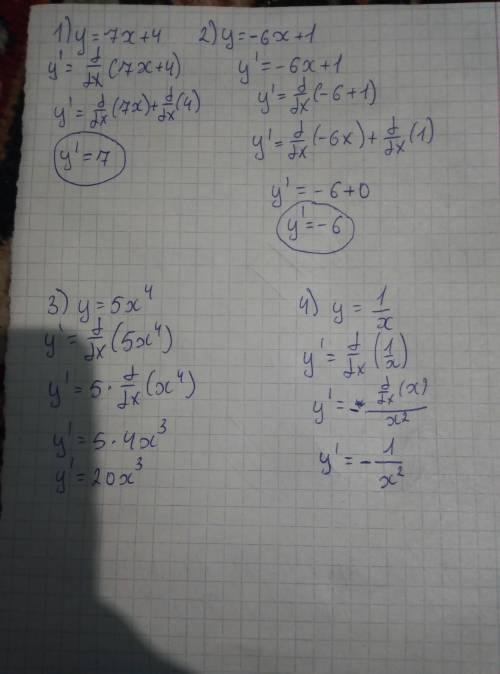 1) y=7x+4
y'=d/dx(7x+4)
y'=d/dx(7x)+d/dx(4)
y'=7
2) y=-6x+1
y'=-6x+1
y'=d/dx(-6+1)
y'=d/dx(-6x)+d/dx(1)
y'=-6+0
y'=-6
3) y=5x⁴
y'=d/dx(5x⁴)
y'=5·d/dx(x⁴)
y'=5·4x³
y'=20x³
4) y=1/x
y'=d/dx(1/x)
y'=-d/dx(x)/x²
y'=-1/x²